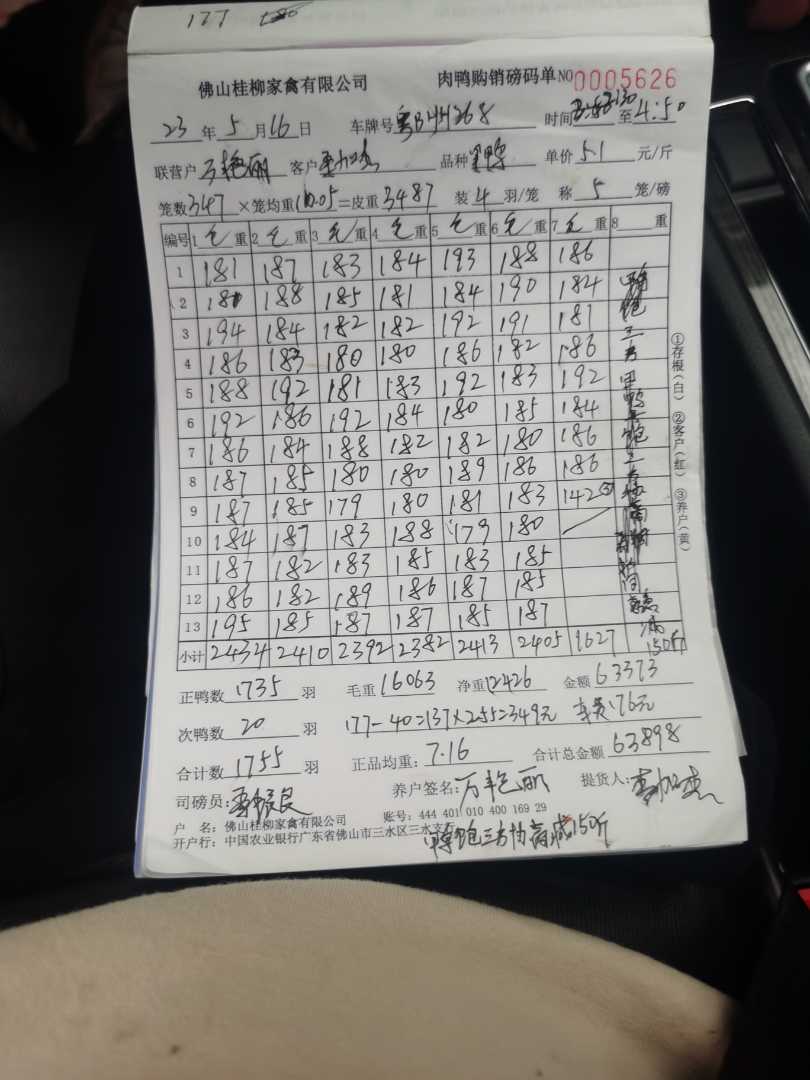 177
佛山桂柳家禽有限公司 肉鸭购销磅码单 NO 0005626
23 年 5 月 16 日 车牌号 粤B44268 时间 至 4:50
联营户 万艳丽 客户 品种 单价 5.1 元/斤
笼数 347 ×笼均重 10.05 =皮重 3487 装 4 羽/笼 称 5 笼/磅
编号 1 毛 重 2 毛 重 3 毛 重 4 毛 重 5 毛 重 6 毛 重 7 毛 重 8 重
1 181 187 183 184 193 188 186
2 181 188 185 181 184 190 184
3 194 184 182 182 192 191 187
4 186 183 180 180 186 182 186
5 188 192 181 183 192 183 192
6 192 186 192 184 180 185 184
7 186 184 188 182 182 180 186
8 187 185 180 180 189 186 186
9 187 185 179 180 181 183 142
10 184 187 183 188 179 180
11 187 182 183 185 183 185
12 186 182 189 186 187 185
13 195 185 187 187 185 187
小计 2434 2410 2392 2382 2413 2405 1627 150斤
①存根(白) ②客户(红) ③养户(黄)
正鸭数 1735 羽 毛重 16063 净重 12426 金额 63373
次鸭数 20 羽 177-40=137×2.55=349元 车费176元
合计数 1755 羽 正品均重: 7.16 合计总金额 63898
司磅员: 养户签名: 万艳丽 提货人:
户 名: 佛山桂柳家禽有限公司 账号: 444 401 010 400 169 29
开户行: 中国农业银行广东省佛山市三水区三水支行
鸭饱三方协商减150斤